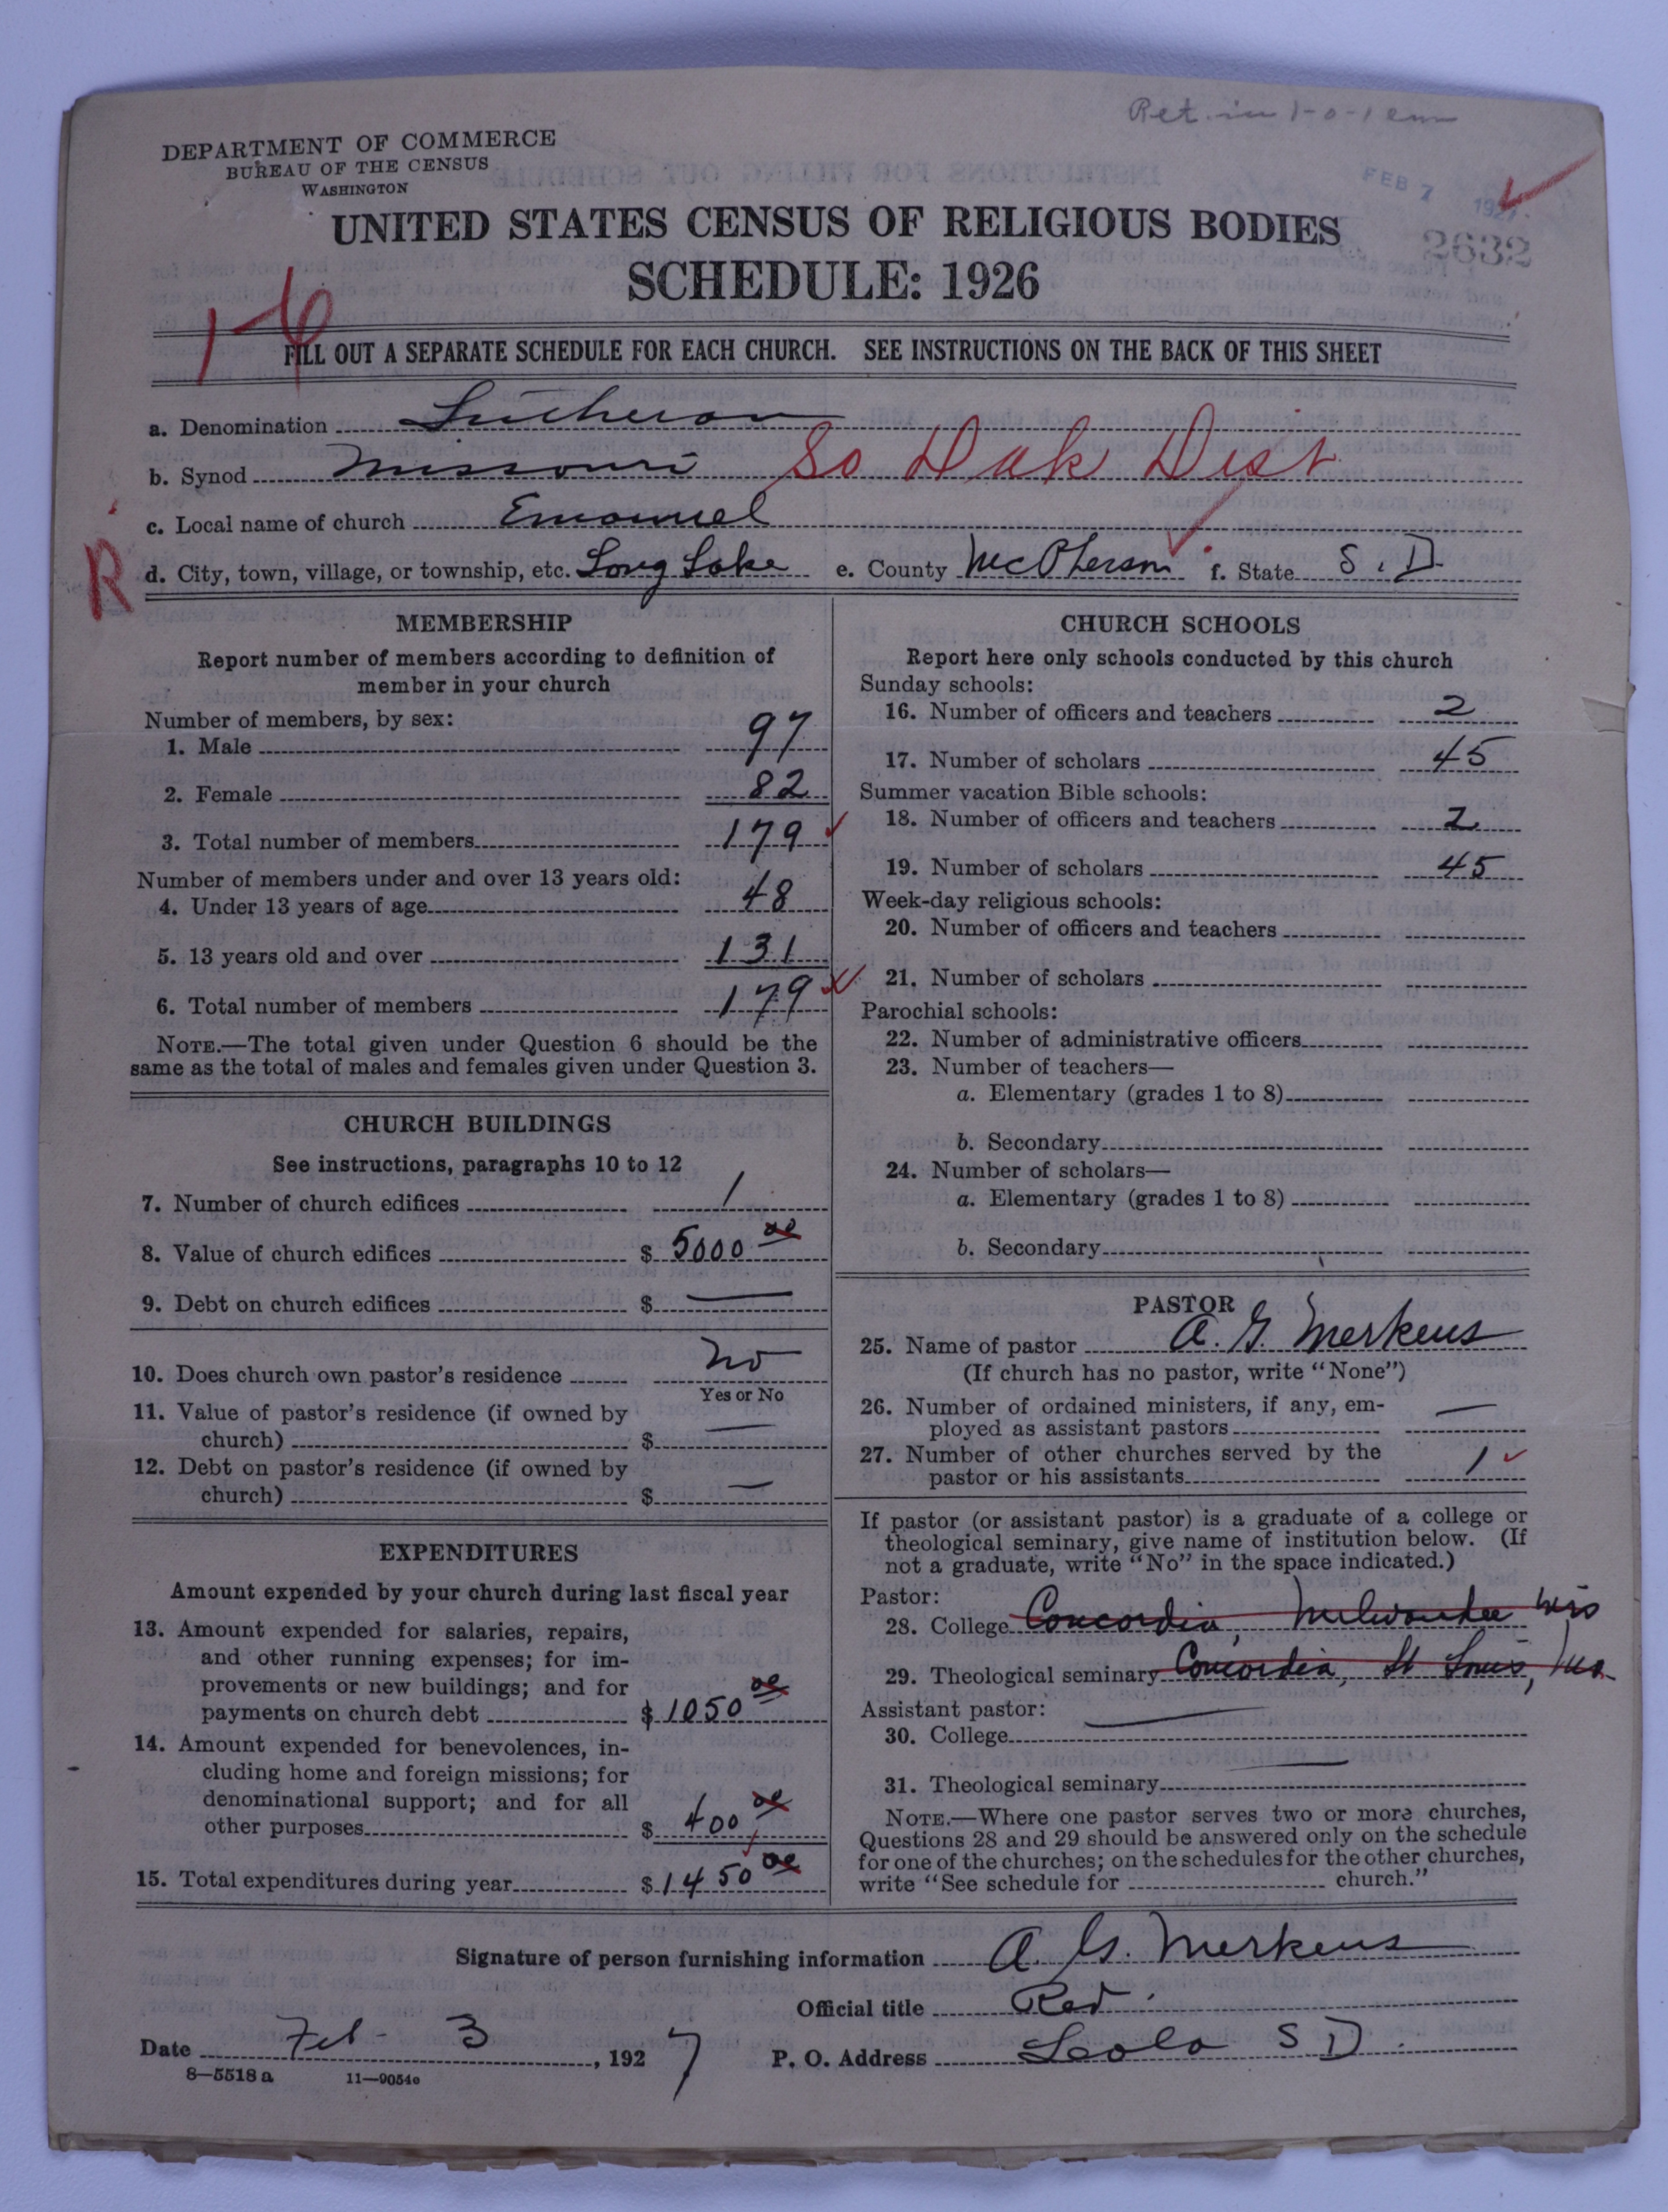 Ret. in 1-0-1
DEPARTMENT OF COMMERCE
BUREAU OF THE CENSUS
WASHINGTON
FEB 7 1927
2632
UNITED STATES CENSUS OF RELIGIOUS BODIES
SCHEDULE: 1926
1-6
FILL OUT A SEPARATE SCHEDULE FOR EACH CHURCH. SEE INSTRUCTIONS ON THE BACK OF THIS SHEET
a. Denomination Lutheran
b. Synod Missouri So Dak Dist
c. Local name of church Emanuel
R d. City, town, village, or township, etc. Long Lake e. County McPherson f. State S. D.
MEMBERSHIP
Report number of members according to definition of
member in your church
Number of members, by sex:
1. Male 97
2. Female 82
3. Total number of members 179
Number of members under and over 13 years old:
4. Under 13 years of age 48
5. 13 years old and over 131
6. Total number of members 179
NOTE.—The total given under Question 6 should be the
same as the total of males and females given under Question 3.
CHURCH BUILDINGS
See instructions, paragraphs 10 to 12
7. Number of church edifices 1
8. Value of church edifices $ 5000 00
9. Debt on church edifices $ —
10. Does church own pastor's residence no
Yes or No
11. Value of pastor's residence (if owned by
church) $ —
12. Debt on pastor's residence (if owned by
church) $ —
EXPENDITURES
Amount expended by your church during last fiscal year
13. Amount expended for salaries, repairs,
and other running expenses; for im-
provements or new buildings; and for
payments on church debt $ 1050 00
14. Amount expended for benevolences, in-
cluding home and foreign missions; for
denominational support; and for all
other purposes $ 400 00
15. Total expenditures during year $ 1450 00
CHURCH SCHOOLS
Report here only schools conducted by this church
Sunday schools:
16. Number of officers and teachers 2
17. Number of scholars 45
Summer vacation Bible schools:
18. Number of officers and teachers 2
19. Number of scholars 45
Week-day religious schools:
20. Number of officers and teachers
21. Number of scholars
Parochial schools:
22. Number of administrative officers
23. Number of teachers—
a. Elementary (grades 1 to 8)
b. Secondary
24. Number of scholars—
a. Elementary (grades 1 to 8)
b. Secondary
PASTOR
25. Name of pastor A. G. Merkens
(If church has no pastor, write "None")
26. Number of ordained ministers, if any, em-
ployed as assistant pastors —
27. Number of other churches served by the
pastor or his assistants 1
If pastor (or assistant pastor) is a graduate of a college or
theological seminary, give name of institution below. (If
not a graduate, write "No" in the space indicated.)
Pastor:
28. College Concordia, Milwaukee Wis
29. Theological seminary Concordia, St Louis, Mo.
Assistant pastor:
30. College —
31. Theological seminary —
NOTE.—Where one pastor serves two or more churches,
Questions 28 and 29 should be answered only on the schedule
for one of the churches; on the schedules for the other churches,
write "See schedule for church."
Signature of person furnishing information A. G. Merkens
Official title Rev.
Date Feb - 3, 1927 P. O. Address Leola S D.
8—5518 a 11—9054c